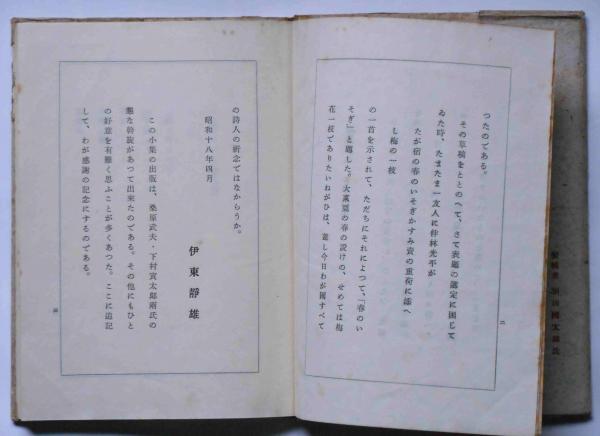 つたのである。
その草稿をととのへて、さて表題の選定に困じて
ゐた時、たまたま一友人に伴林光平が
たが宿の春のいそぎかすみ賣の重荷に添へ
し梅の一枝
の一首を示されて、ただちにそれによつて、「春のい
そぎ」と題した。大東亞の春の設けの、せめては梅
花一枝でありたいねがひは、蓋し今日わが國すべて
二
の詩人の祈念ではなからうか。
昭和十八年四月
伊東靜雄
この小集の出版は、桑原武夫・下村寅太郎兩氏の
懇な斡旋があつて出來たのである。その他にもひと
の好意を有難く思ふことが多くあつた。ここに追記
して、わが感謝の記念にするのである。
三